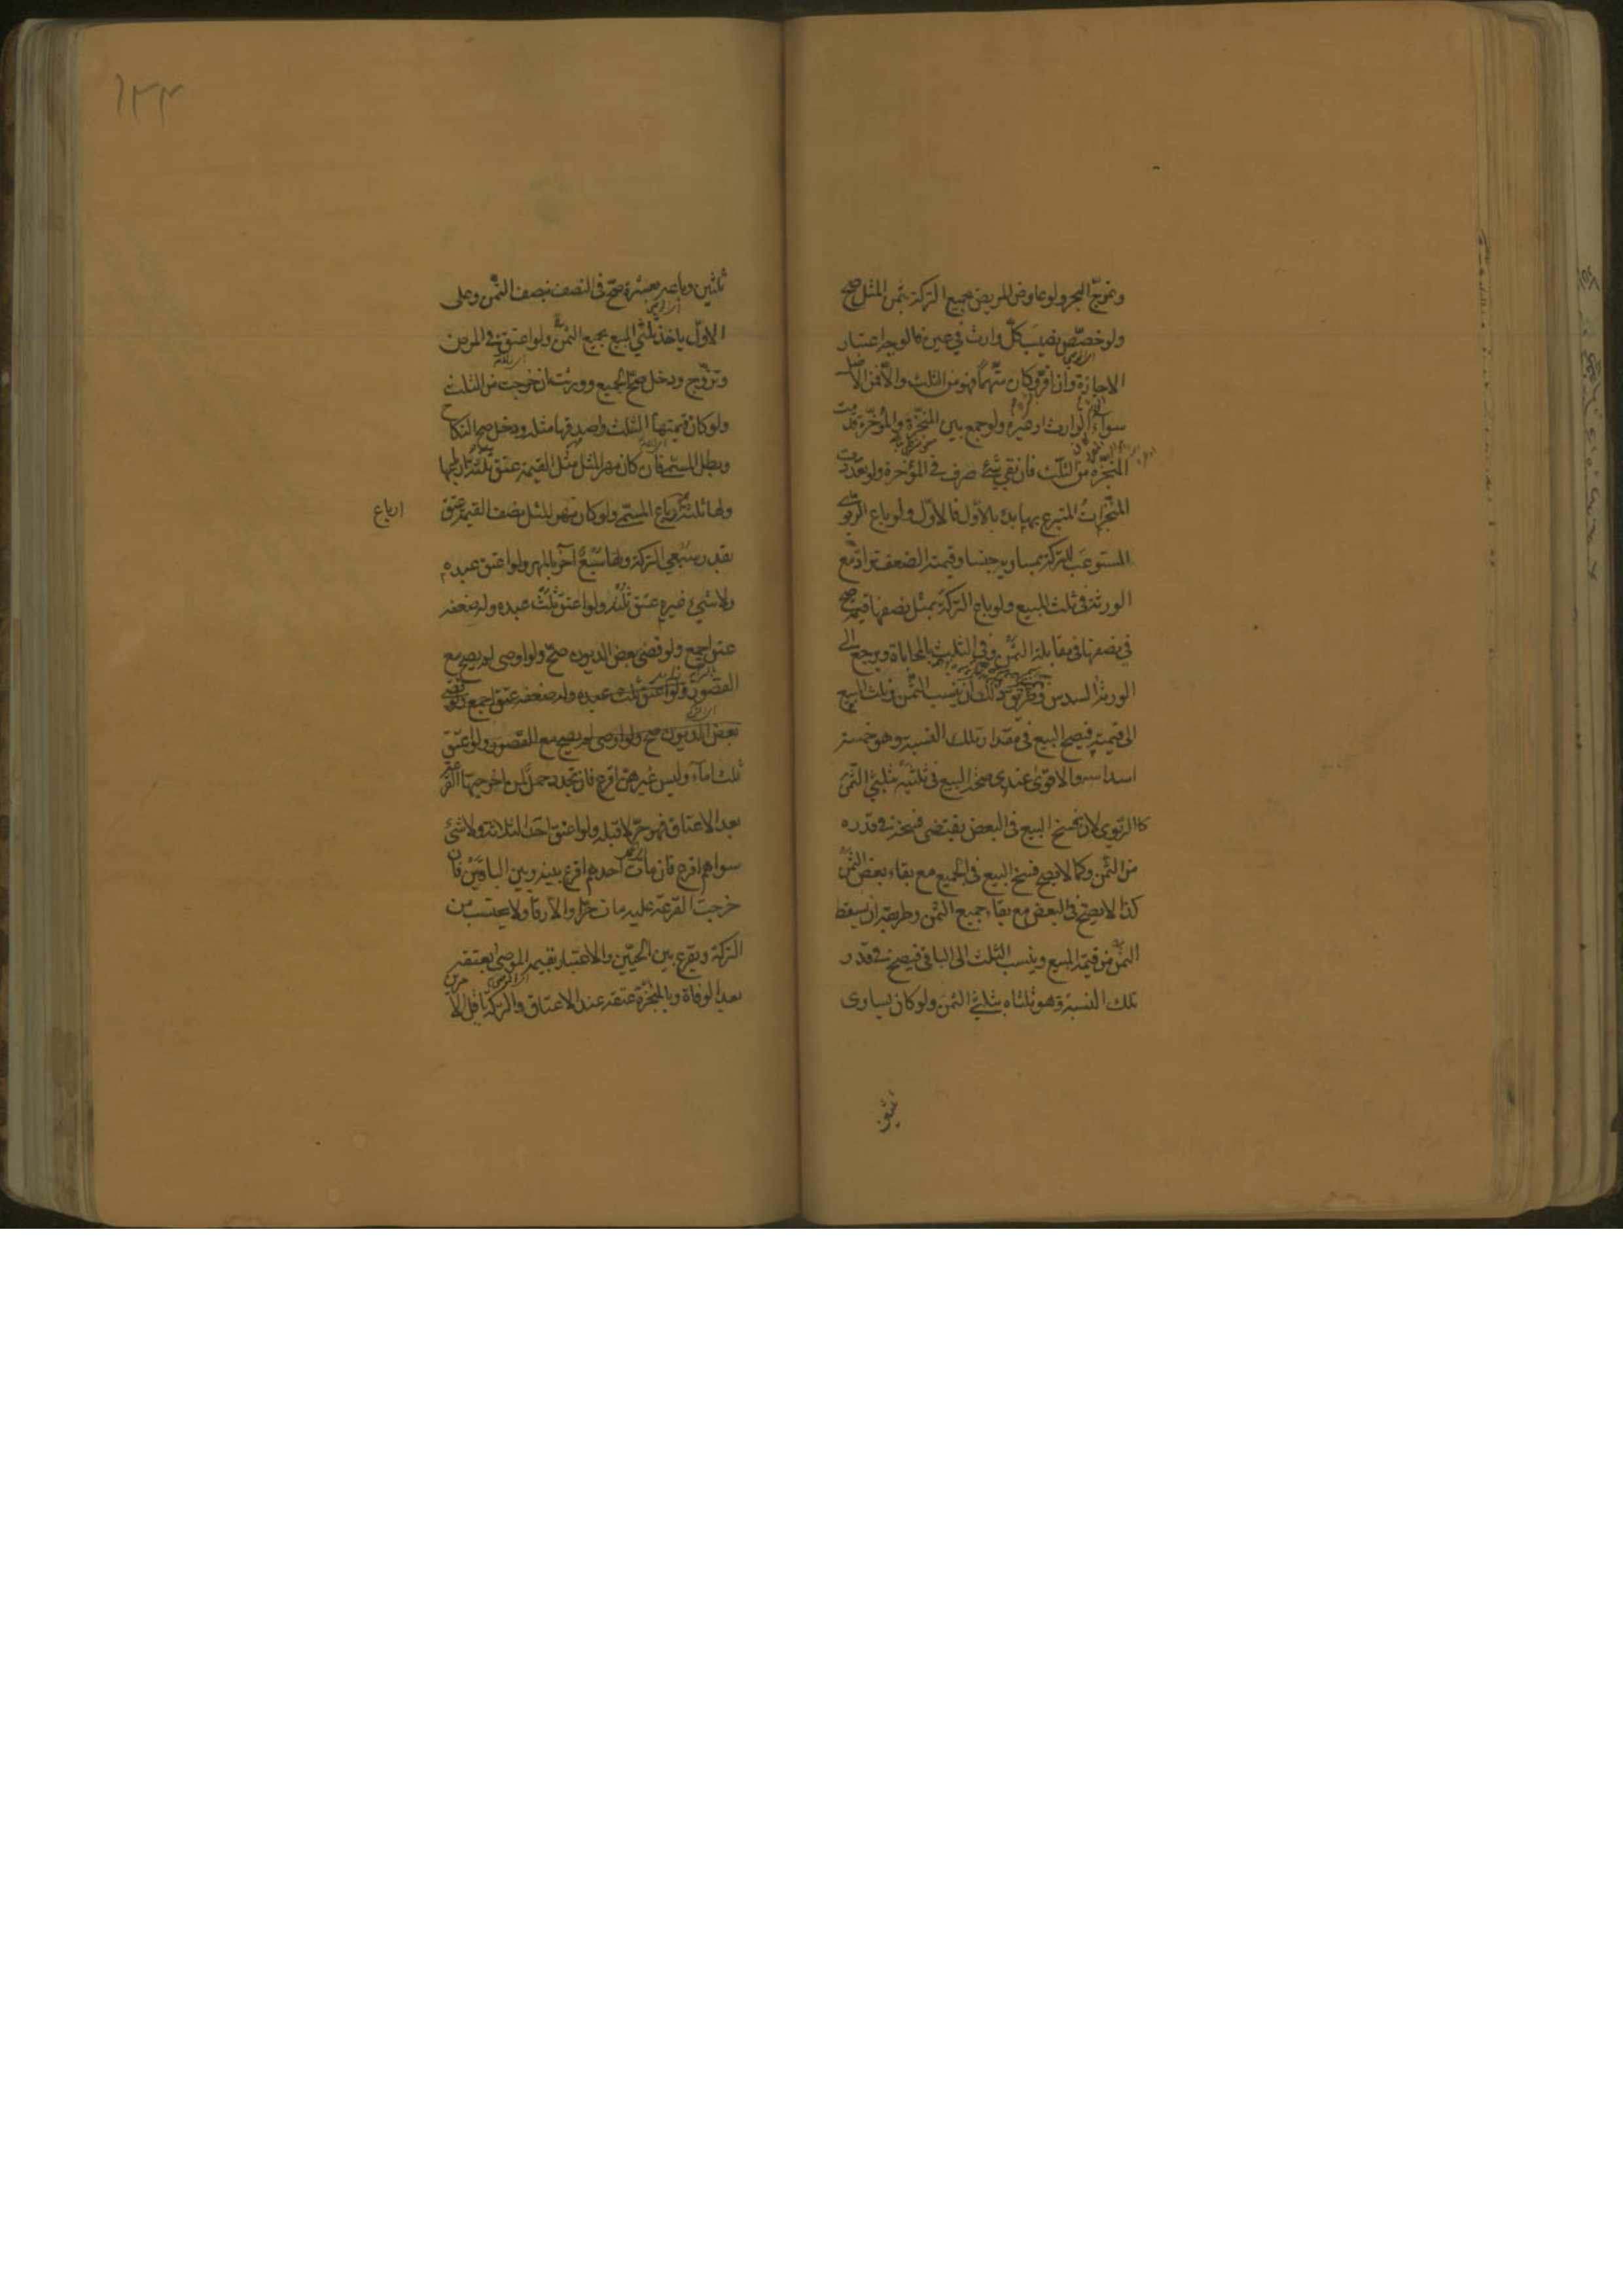 وتموّج البحر ولو عاوض المريض جميع التركة بثمن المثل صح
ولو خصّص نصيب كلّ وارث في عين فالوجه اعتبار
الاجازة وان اقرّ وكان متّهما فهو من الثلث والّا فمن الاصل
سواء الوارث او غيره ولو جمع بين المنجّزة والمؤخّرة قدّمت
المنجّزة من الثلث فان بقي شئ صرف في المؤخرة ولو تعدّدت
المنجّزات المتبرع بها بدئ بالاوّل فالاوّل ولو باع الربويّ
المستوعب للتركة بمساويه جنسا وقيمته الضعف تراد مع
الورثة في ثلث المبيع ولو باع التركة بمثل نصفها قيمة صح
في نصفها في مقابلة الثمن وفي الثلث بالمحاباة ويرجع الى
الورثة السدس وطريق ذلك ان ينسب الثمن وثلث المبيع
الى قيمته فيصح البيع في مقدار تلك النسبة وهو خمسة
اسداسه والاقوى عندي صحة البيع في ثلثيه بثلثي الثمن
كالربوي لان فسخ البيع في البعض يقتضي فسخه في قدره
من الثمن وكما لا يصح فسخ البيع في الجميع مع بقاء بعض الثمن
كذا لا يصح في البعض مع بقاء جميع الثمن وطريقه ان يسقط
الثمن من قيمة المبيع وينسب الثلث الى الباقي فيصح في قدر
تلك النسبة وهو ثلثاه بثلثي الثمن ولو كان يساوي
ثلثين
١٢٣
ثلثين وباعه بعشرة صحّ في النصف بنصف الثمن وعلى
الاوّل ياخذ ثلثي المبيع بجميع الثمن ولو اعتق في المرض
وتزوّج ودخل صحّ الجميع وورثت ان خرجت من الثلث
ولو كان قيمتها الثلث واصدقها مثله ودخل صح النكاح
وبطل المسمى فان كان مهر المثل مثل القيمة عتق ثلثة ارباعها
ولها ثلثة ارباع المسمّى ولو كان مهر المثل نصف القيمة عتق
ارباع
بقدر سبعي التركة ولها سبع آخر بالمهر ولو اعتق عبده
ولا شئ غيره عتق ثلثه ولو اعتق ثلث عبده وله ضعفه
عتق اجمع ولو قضى بعض الديون صحّ ولو اوصى لم يصح مع
القصور ولو اعتق ثلث عبده وله ضعفه عتق اجمع ولو قضى
بعض الديون صح ولو اوصى لم يصح مع القصور ولو اعتق
ثلث اماء وليس غيرهنّ اقرع فان تجدد حمل لمن اخرجتها القرعة
بعد الاعتاق فهو حرّ لا قبله ولو اعتق احد الثلاثة ولا شئ
سواهم اقرع فان مات احدهم اقرع بينه وبين الباقين فان
خرجت القرعة عليه مات حرّا والّا رقا ولا يحتسب من
التركة ويقرع بين الحيّين والاعتبار بقيمة الموصى بعتقه
بعد الوفاة وبالمنجّزة عتقه عند الاعتاق والتركة باقل الامرين